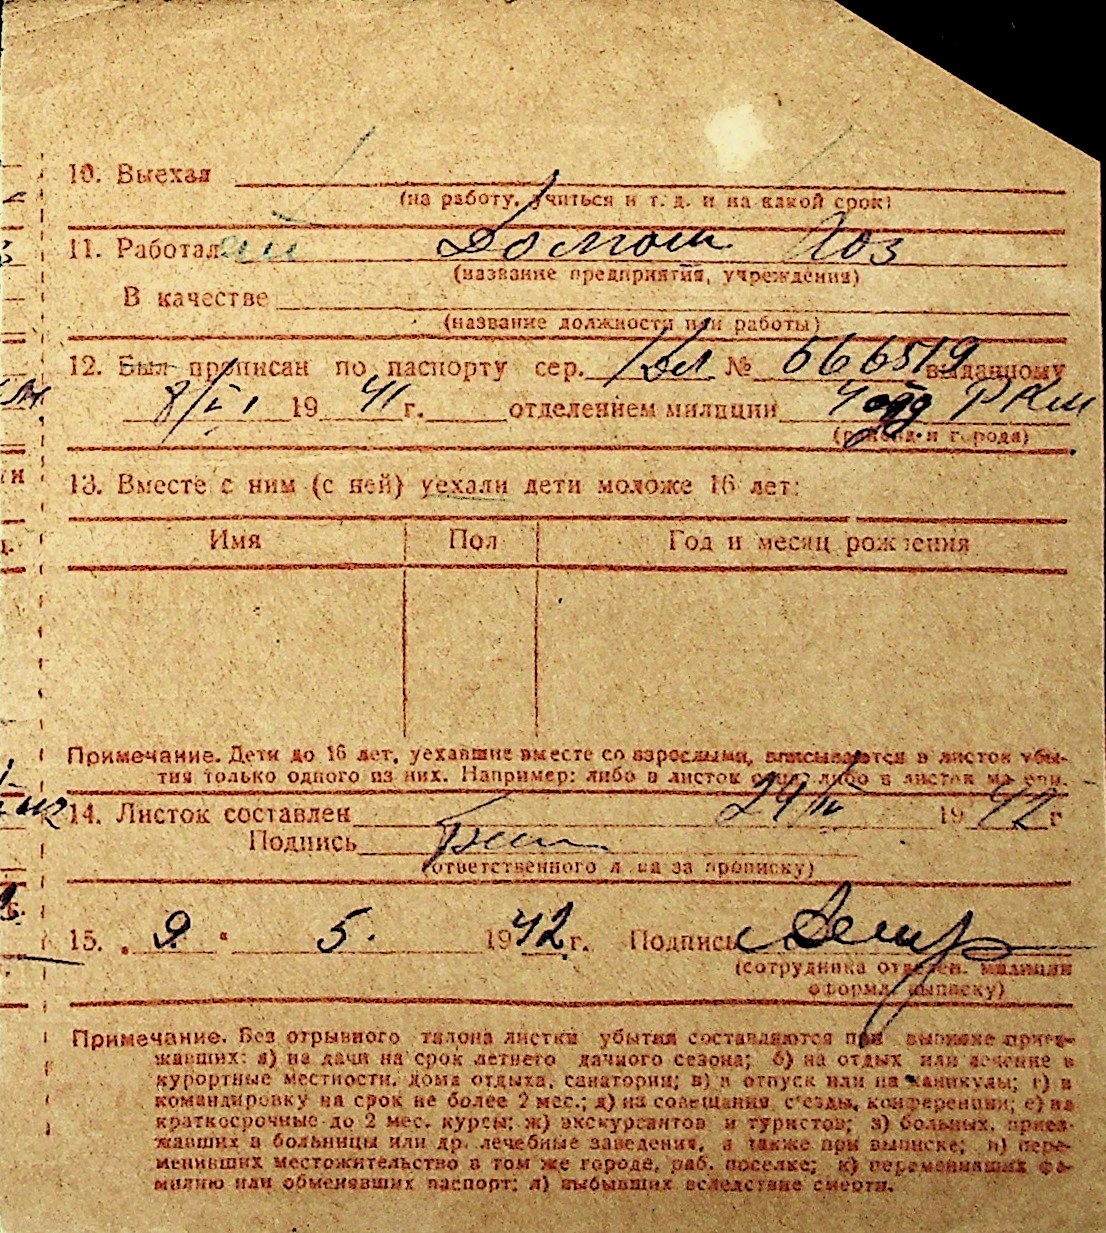 10. Выехал
(на работу, учиться и т. д. и на какой срок)
11. Работал Домаш Хоз
(название предприятия, учреждения)
В качестве
(название должности или работы)
12. Был прописан по паспорту сер. № 566519 выданному
8/VI 1941 г. отделением милиции РКМ
(района и города)
13. Вместе с ним (с ней) уехали дети моложе 16 лет:
Имя Пол Год и месяц рождения
Примечание. Дети до 16 лет, уехавшие вместе со взрослыми, вписываются в листок убы-
тия только одного из них. Например: либо в листок отца, либо в листок матери.
14. Листок составлен 29/IV 1942 г
Подпись
(ответственного лица за прописку)
15. „9“ 5. 1942 г. Подпись
(сотрудника отделен. милиции
оформл. выписку)
Примечание. Без отрывного талона листки убытия составляются при выписке приез-
жавших: а) на дачи на срок летнего дачного сезона; б) на отдых или лечение в
курортные местности, дома отдыха, санатории; в) в отпуск или на каникулы; г) в
командировку на срок не более 2 мес.; д) на совещания, съезды, конференции; е) на
краткосрочные до 2 мес. курсы; ж) экскурсантов и туристов; з) больных, приез-
жавших в больницы или др. лечебные заведения, а также при выписке; и) пере-
менивших местожительство в том же городе, раб. поселке; к) переменивших фа-
милию или обменявших паспорт; л) выбывших вследствие смерти.